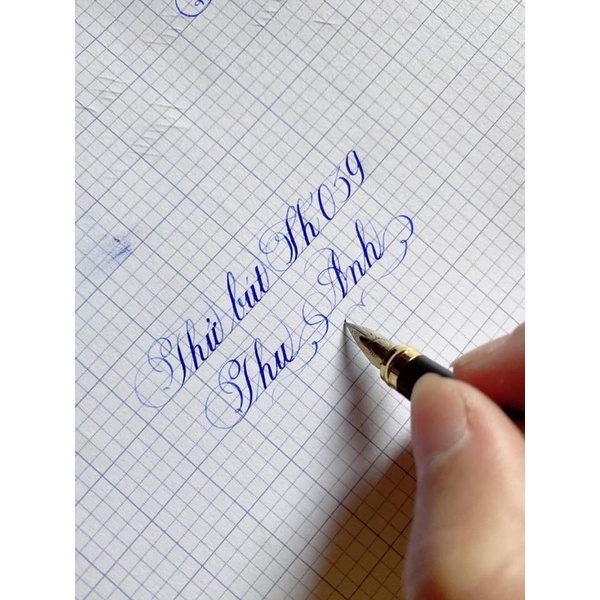 Thử bút Sh 039
Thu Anh